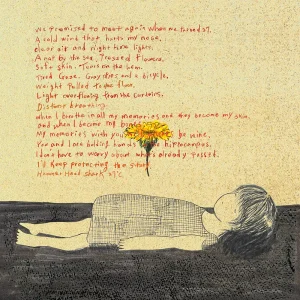 we promised to meet again when we turned 37.
A cold wind that hurts my nose,
clear air and night time lights,
A nap by the sea, Pressed flowers.
Soft skin. Tears on the hem.
Tired Gaze. Gray skies and a bicycle.
Weight Pulled to the floor,
Light overflowing from the curtains,
Distant breathing.
When I breathe in all my memories and they become my skin,
and when I become my bones
My memories with you be wine.
You and I are holding hands hippocampus.
I don't have to worry about what's already passed.
I'd keep protecting the
Hammer Head shark